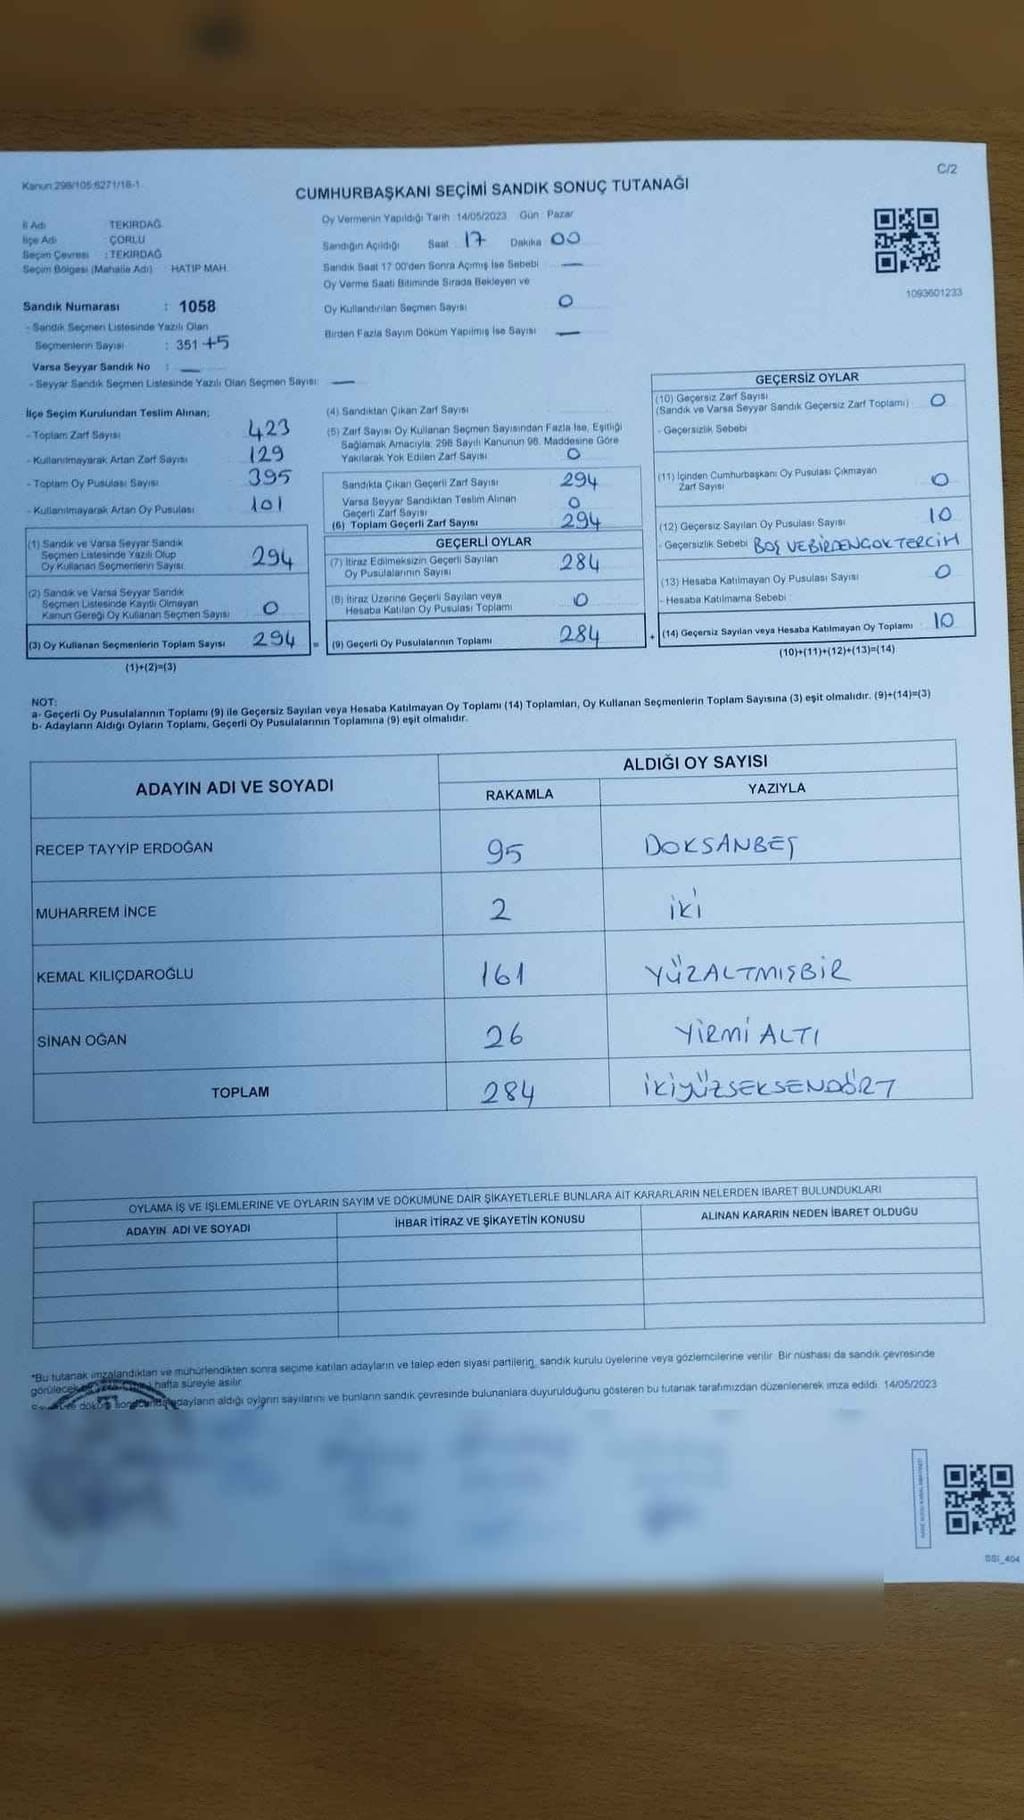 Kanun:298/105:6271/18-1
C/2
CUMHURBAŞKANI SEÇİMİ SANDIK SONUÇ TUTANAĞI
İl Adı TEKİRDAĞ
İlçe Adı ÇORLU
Seçim Çevresi : TEKİRDAĞ
Seçim Bölgesi (Mahalle Adı) HATİP MAH.
Oy Vermenin Yapıldığı Tarih :14/05/2023 Gün : Pazar
Sandığın Açıldığı Saat 17 Dakika 00
Sandık Saat 17:00'den Sonra Açılmış İse Sebebi —
Oy Verme Saati Bitiminde Sırada Bekleyen ve
Oy Kullandırılan Seçmen Sayısı 0
Birden Fazla Sayım Döküm Yapılmış İse Sayısı —
1093601233
Sandık Numarası : 1058
- Sandık Seçmen Listesinde Yazılı Olan
Seçmenlerin Sayısı : 351 +5
Varsa Seyyar Sandık No : —
- Seyyar Sandık Seçmen Listesinde Yazılı Olan Seçmen Sayısı: —
İlçe Seçim Kurulundan Teslim Alınan;
- Toplam Zarf Sayısı 423
- Kullanılmayarak Artan Zarf Sayısı 129
- Toplam Oy Pusulası Sayısı 395
- Kullanılmayarak Artan Oy Pusulası 101
(1) Sandık ve Varsa Seyyar Sandık
Seçmen Listesinde Yazılı Olup
Oy Kullanan Seçmenlerin Sayısı 294
(2) Sandık ve Varsa Seyyar Sandık
Seçmen Listesinde Kayıtlı Olmayan
Kanun Gereği Oy Kullanan Seçmen Sayısı 0
(3) Oy Kullanan Seçmenlerin Toplam Sayısı 294
(1)+(2)=(3)
(4) Sandıktan Çıkan Zarf Sayısı
(5) Zarf Sayısı Oy Kullanan Seçmen Sayısından Fazla İse, Eşitliği
Sağlamak Amacıyla; 298 Sayılı Kanunun 98. Maddesine Göre
Yakılarak Yok Edilen Zarf Sayısı 0
Sandıkta Çıkan Geçerli Zarf Sayısı 294
Varsa Seyyar Sandıktan Teslim Alınan
Geçerli Zarf Sayısı 0
(6) Toplam Geçerli Zarf Sayısı 294
GEÇERLİ OYLAR
(7) İtiraz Edilmeksizin Geçerli Sayılan
Oy Pusulalarının Sayısı 284
(8) İtiraz Üzerine Geçerli Sayılan veya
Hesaba Katılan Oy Pusulası Toplamı 0
= (9) Geçerli Oy Pusulalarının Toplamı 284
GEÇERSİZ OYLAR
(10) Geçersiz Zarf Sayısı
(Sandık ve Varsa Seyyar Sandık Geçersiz Zarf Toplamı) 0
- Geçersizlik Sebebi
(11) İçinden Cumhurbaşkanı Oy Pusulası Çıkmayan
Zarf Sayısı 0
(12) Geçersiz Sayılan Oy Pusulası Sayısı 10
- Geçersizlik Sebebi BOŞ VE BİRDEN ÇOK TERCİH
(13) Hesaba Katılmayan Oy Pusulası Sayısı 0
- Hesaba Katılmama Sebebi :
+ (14) Geçersiz Sayılan veya Hesaba Katılmayan Oy Toplamı 10
(10)+(11)+(12)+(13)=(14)
NOT:
a- Geçerli Oy Pusulalarının Toplamı (9) ile Geçersiz Sayılan veya Hesaba Katılmayan Oy Toplamı (14) Toplamları, Oy Kullanan Seçmenlerin Toplam Sayısına (3) eşit olmalıdır. (9)+(14)=(3)
b- Adayların Aldığı Oyların Toplamı, Geçerli Oy Pusulalarının Toplamına (9) eşit olmalıdır.
ADAYIN ADI VE SOYADI
ALDIĞI OY SAYISI
RAKAMLA YAZIYLA
RECEP TAYYİP ERDOĞAN 95 DOKSANBEŞ
MUHARREM İNCE 2 İKİ
KEMAL KILIÇDAROĞLU 161 YÜZALTMIŞBİR
SİNAN OĞAN 26 YİRMİ ALTI
TOPLAM 284 İKİYÜZSEKSENDÖRT
OYLAMA İŞ VE İŞLEMLERİNE VE OYLARIN SAYIM VE DÖKÜMÜNE DAİR ŞİKAYETLERLE BUNLARA AİT KARARLARIN NELERDEN İBARET BULUNDUKLARI
ADAYIN ADI VE SOYADI İHBAR İTİRAZ VE ŞİKAYETİN KONUSU ALINAN KARARIN NEDEN İBARET OLDUĞU
*Bu tutanak imzalandıktan ve mühürlendikten sonra seçime katılan adayların ve talep eden siyasi partilerin, sandık kurulu üyelerine veya gözlemcilerine verilir. Bir nüshası da sandık çevresinde
hafta süreyle asılır.
adayların aldığı oyların sayılarını ve bunların sandık çevresinde bulunanlara duyurulduğunu gösteren bu tutanak tarafımızdan düzenlenerek imza edildi. 14/05/2023